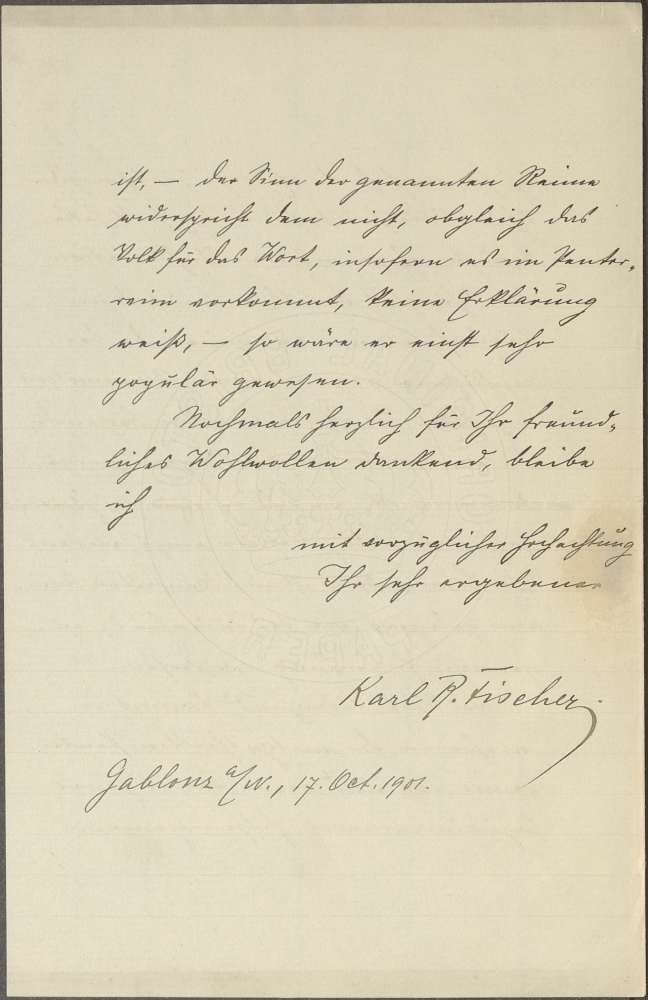 ist, — der Sinn der genannten Reime
widerspricht dem nicht, obgleich das
Volk für das Wort, insofern es im Penter-
reim vorkommt, keine Erklärung
weiß, — so wäre er einst sehr
populär gewesen.
Nochmals herzlich für Ihr freund-
liches Wohlwollen dankend, bleibe
ich
mit vorzüglicher Hochachtung
Ihr sehr ergebener
Karl R. Fischer.
Gablonz a/N., 17. Oct. 1901.